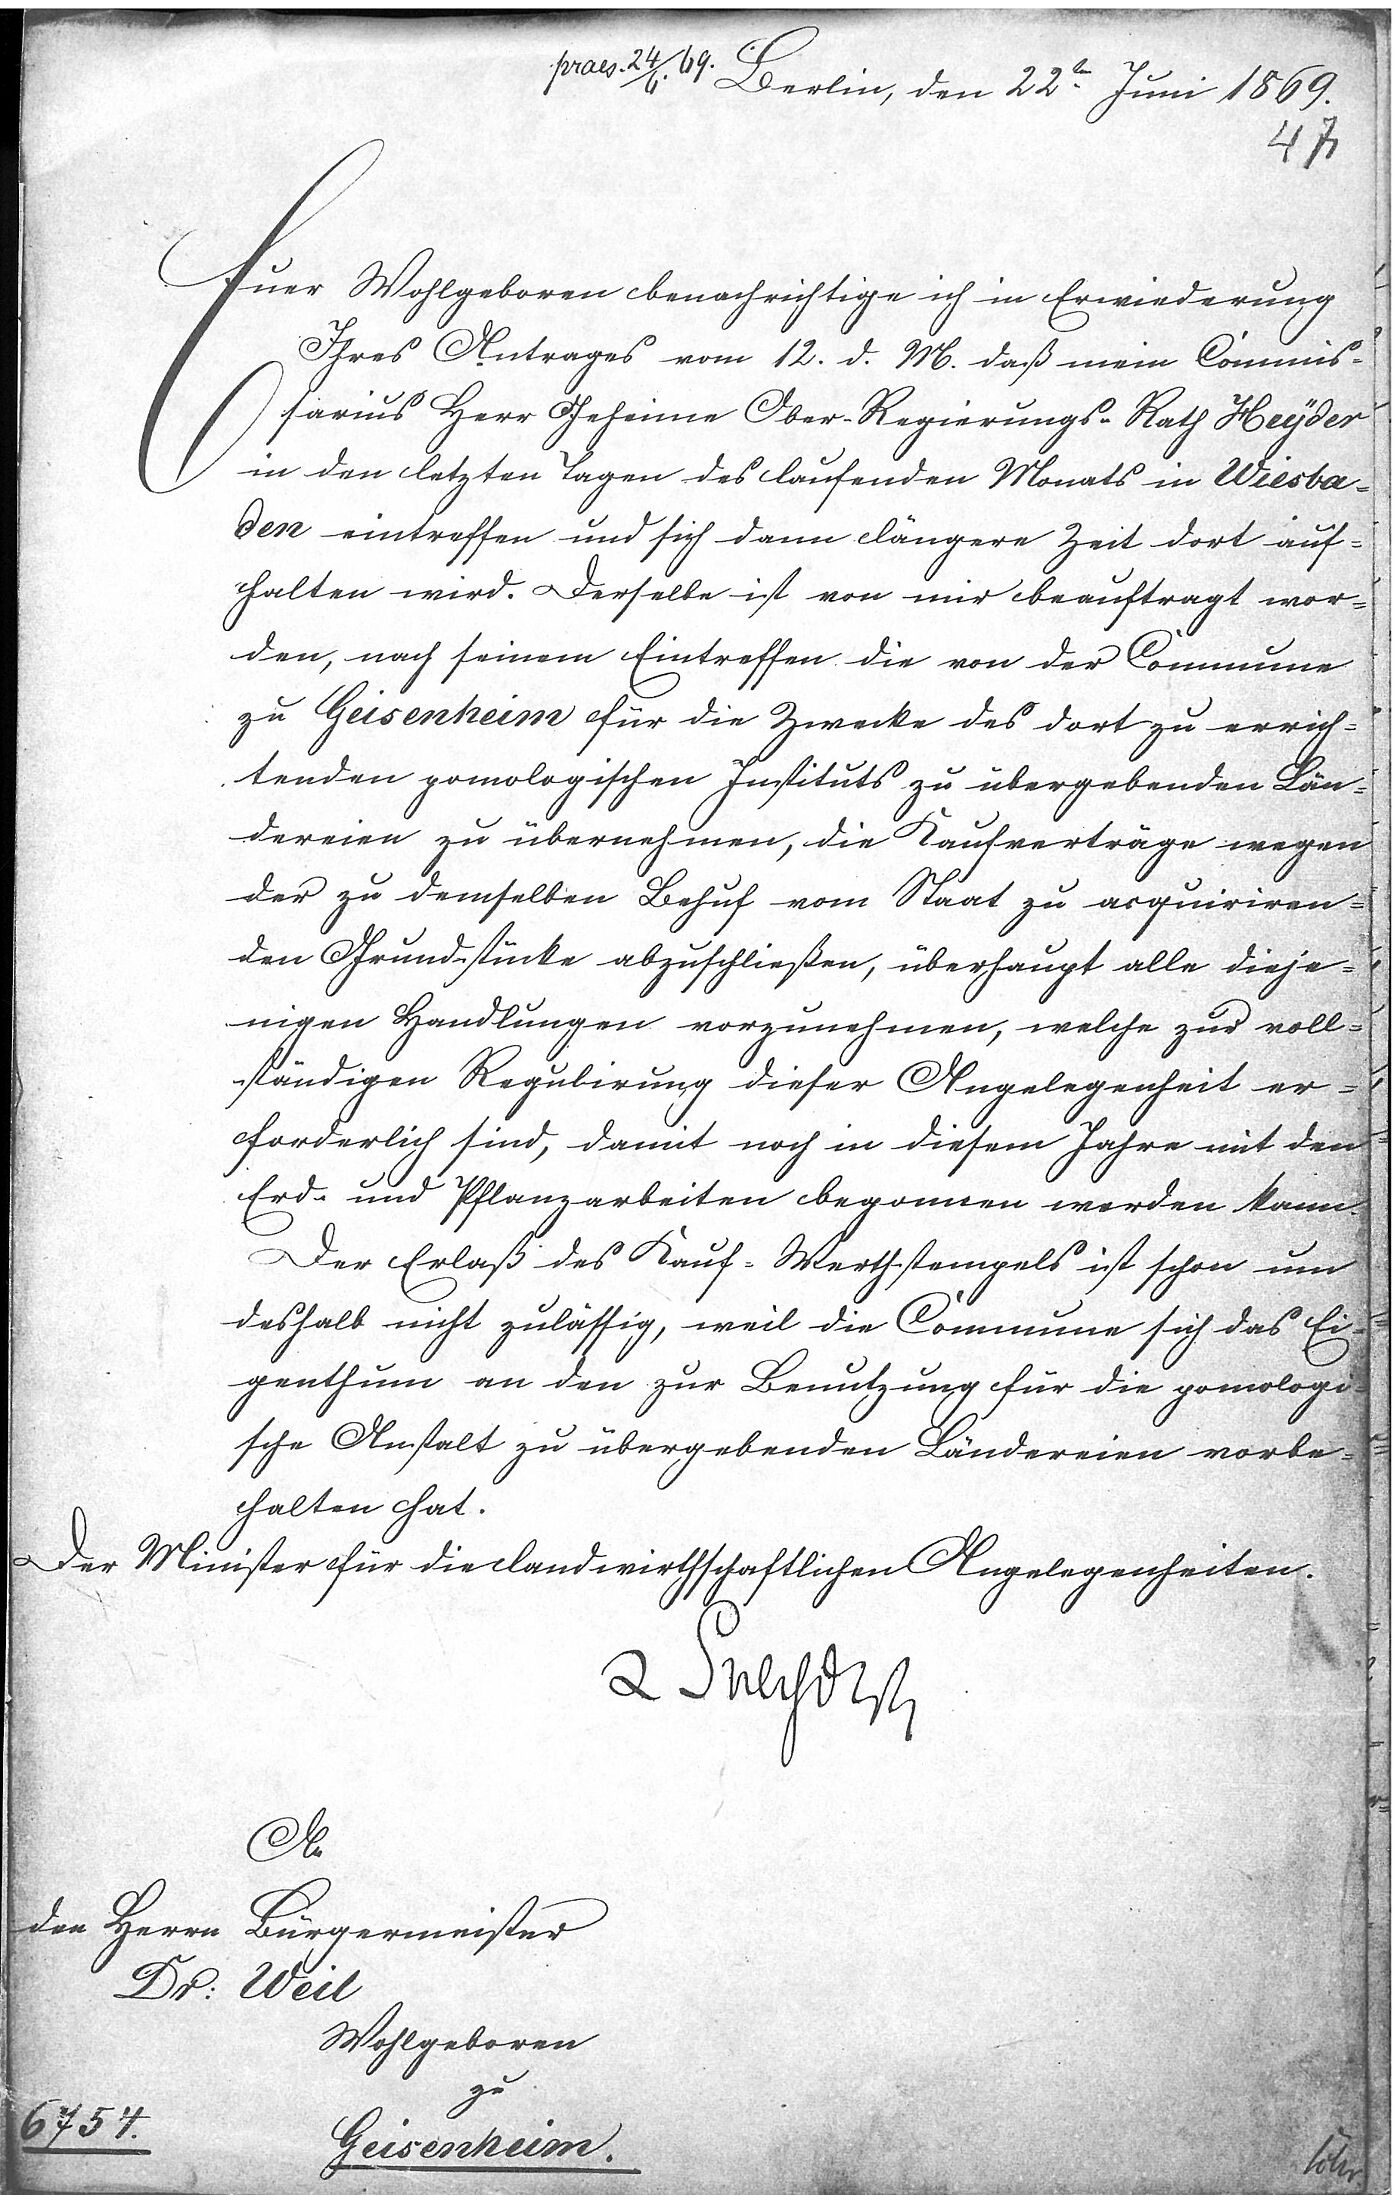 praes. 24/6. 69.
Berlin, den 22ten Juni 1869.
47
Euer Wohlgeboren benachrichtige ich in Erwiederung
Ihres Antrages vom 12. d. M. daß mein Commis-
sarius Herr Geheime Ober-Regierungs-Rath Heyder
in den letzten Tagen des laufenden Monats in Wiesba-
den eintreffen und sich dann längere Zeit dort auf-
halten wird. Derselbe ist von mir beauftragt wor-
den, nach seinem Eintreffen die von der Commune
zu Geisenheim für die Zwecke des dort zu errich-
tenden pomologischen Instituts zu übergebenden Län-
dereien zu übernehmen, die Kaufverträge wegen
der zu demselben Behuf vom Staat zu acquiriren-
den Grundstücke abzuschließen, überhaupt alle dieje-
nigen Handlungen vorzunehmen, welche zur voll-
ständigen Regulirung dieser Angelegenheit er-
forderlich sind, damit noch in diesem Jahre mit den
Erd- und Pflanzarbeiten begonnen werden kann.
Der Erlaß des Kauf-Werthstempels ist schon um
deshalb nicht zulässig, weil die Commune sich das Ei-
genthum an den zur Benutzung für die pomologi-
sche Anstalt zu übergebenden Ländereien vorbe-
halten hat.
Der Minister für die landwirthschaftlichen Angelegenheiten.
An
den Herrn Bürgermeister
Dr: Weil
Wohlgeboren
zu
Geisenheim.
6754.